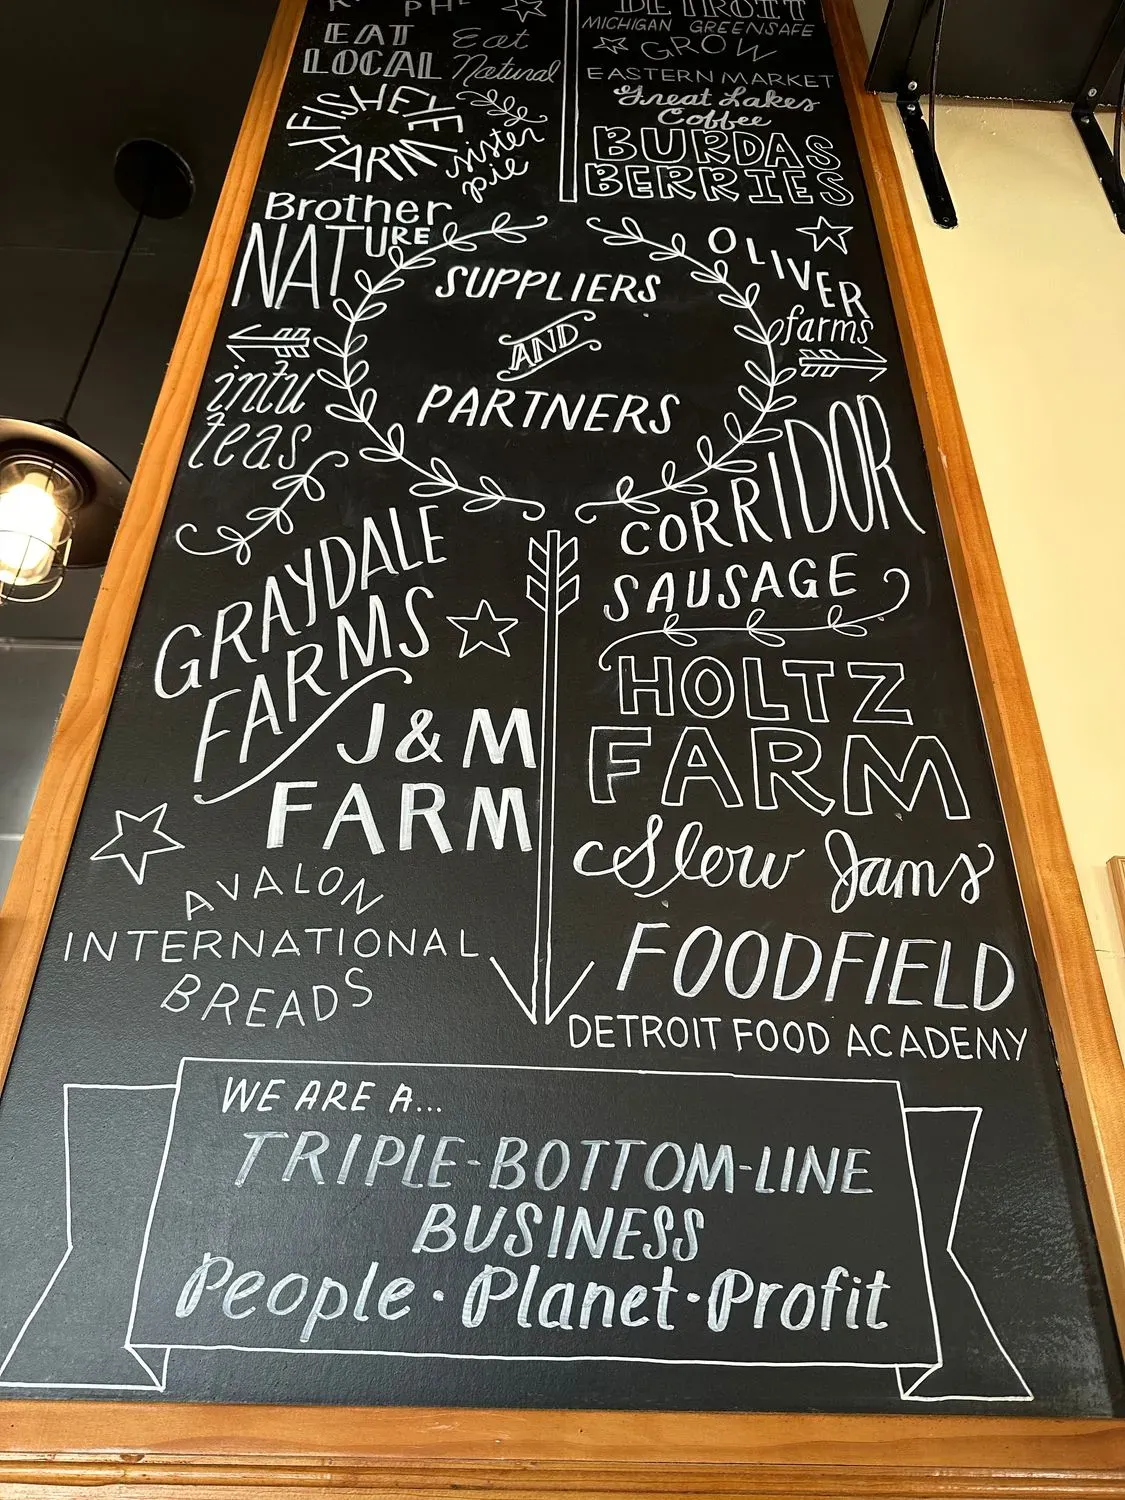 EAT
LOCAL
Eat
Natural
FISHEYE
FARM
sister
pie
Brother
NATURE
intu
teas
DETROIT
MICHIGAN GREENSAFE
GROW
EASTERN MARKET
Great Lakes
Coffee
BURDAS
BERRIES
OLIVER
farms
SUPPLIERS
AND
PARTNERS
GRAYDALE
FARMS
J&M
FARM
AVALON
INTERNATIONAL
BREADS
CORRIDOR
SAUSAGE
HOLTZ
FARM
Slow Jams
FOODFIELD
DETROIT FOOD ACADEMY
WE ARE A...
TRIPLE-BOTTOM-LINE
BUSINESS
People · Planet · Profit